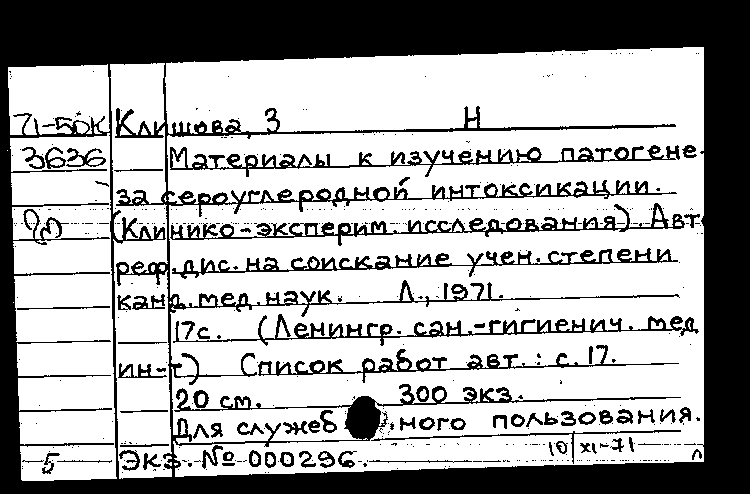 71-50К Клишова, З Н
3636 Материалы к изучению патогене-
за сероуглеродной интоксикации.
(Клинико-эксперим. исследования). Авто
реф. дис. на соискание учен. степени
канд. мед. наук. Л., 1971.
17с. (Ленингр. сан.-гигиенич. мед
ин-т) Список работ авт.: с. 17.
20 см. 300 экз.
Для служеб .ного пользования.
5 Экз. № 000296. 10 XI-71